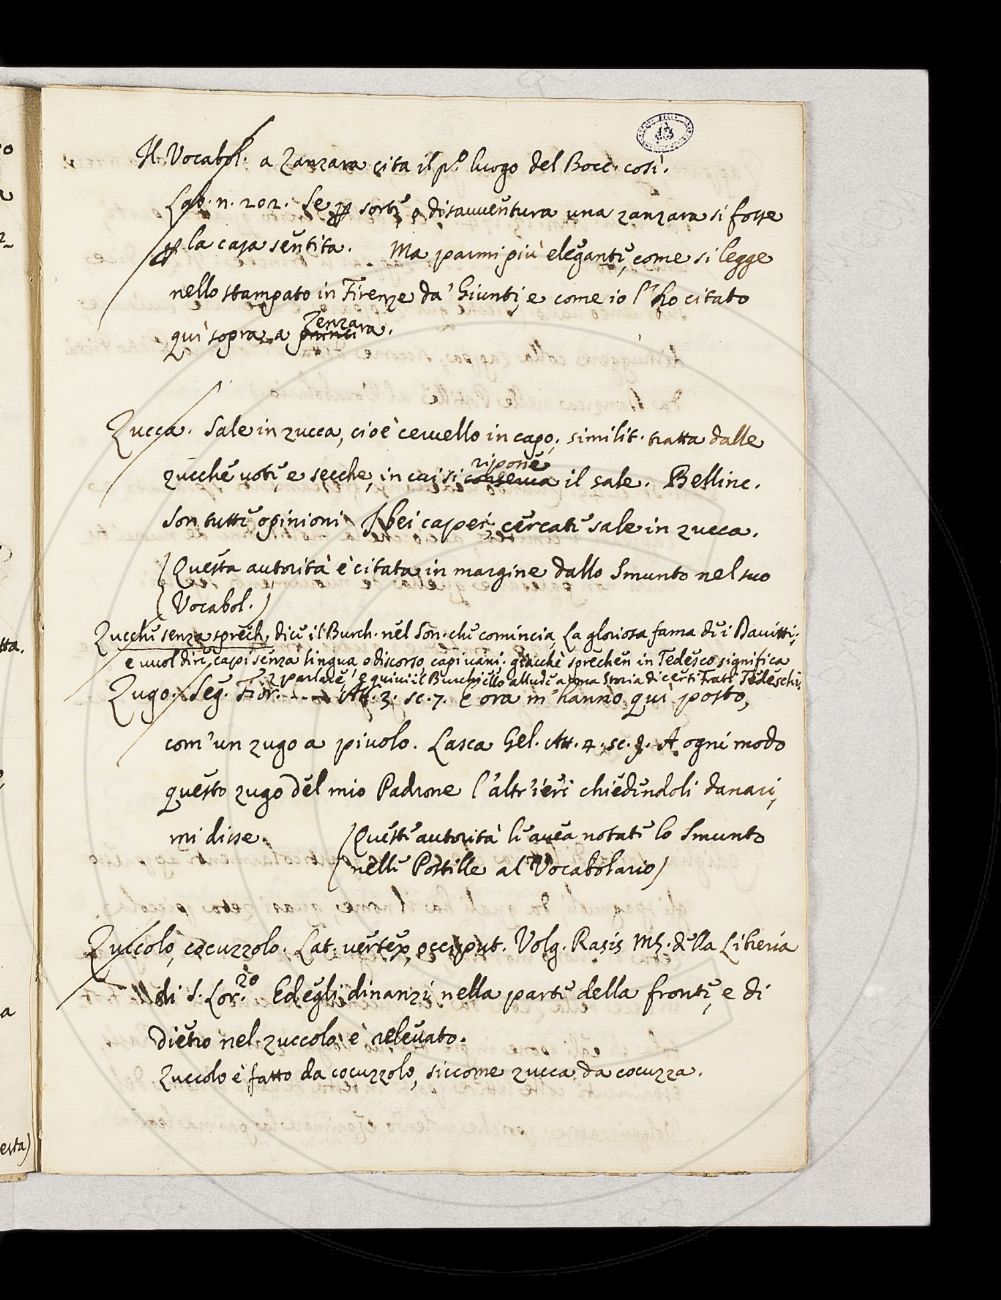 Il Vocabol. a Zanzara cita il p.º luogo del Bocc. così.
Lab. n. 202. Se per sorte, o disavventura una zanzara si fosse
per la casa sentita. Ma parmi più elegante, come si legge
nello stampato in Firenze da' Giunti, e come io l'ho citato
qui sopra, a Zenzara.
Zucca. Sale in zucca, cioè cervello in capo, similit. tratta dalle
zucche vote, e secche, in cui si ripone il sale. Bellinc.
Son tutte opinioni I bei caperi, cercate sale in zucca.
(Questa autorità è citata in margine dallo Smunto nel suo
Vocabol.)
Zucche senza sprech, dice il Burch. nel Son. che comincia, La gloriosa fama de i Davitti;
e vuol dire, capi senza lingua, o discorso, capi vani: giacchè sprechen in Tedesco significa
parlare, e quivi il Burchiello allude a una Storia di certi Frati Tedeschi.
Zugo. Seg. Fior. At. 3. sc. 7. e ora m'hanno quì posto,
com'un zugo a piuolo. Lasca Gel. At. 4. sc. A ogni modo
questo zugo del mio Padrone l'altr'ieri chiedendoli danari,
mi disse. (Queste autorità le avea notate lo Smunto
nelle Postille al Vocabolario)
Zuccolo, cocuzzolo. Lat. vertex, occiput. Volg. Rasis MS. della Libreria
di S. Lor.zo Ed egli dinanzi nella parte della fronte, e di
dietro nel zuccolo è relevato.
Zuccolo è fatto da cocuzzolo, siccome zucca da cocuzza.